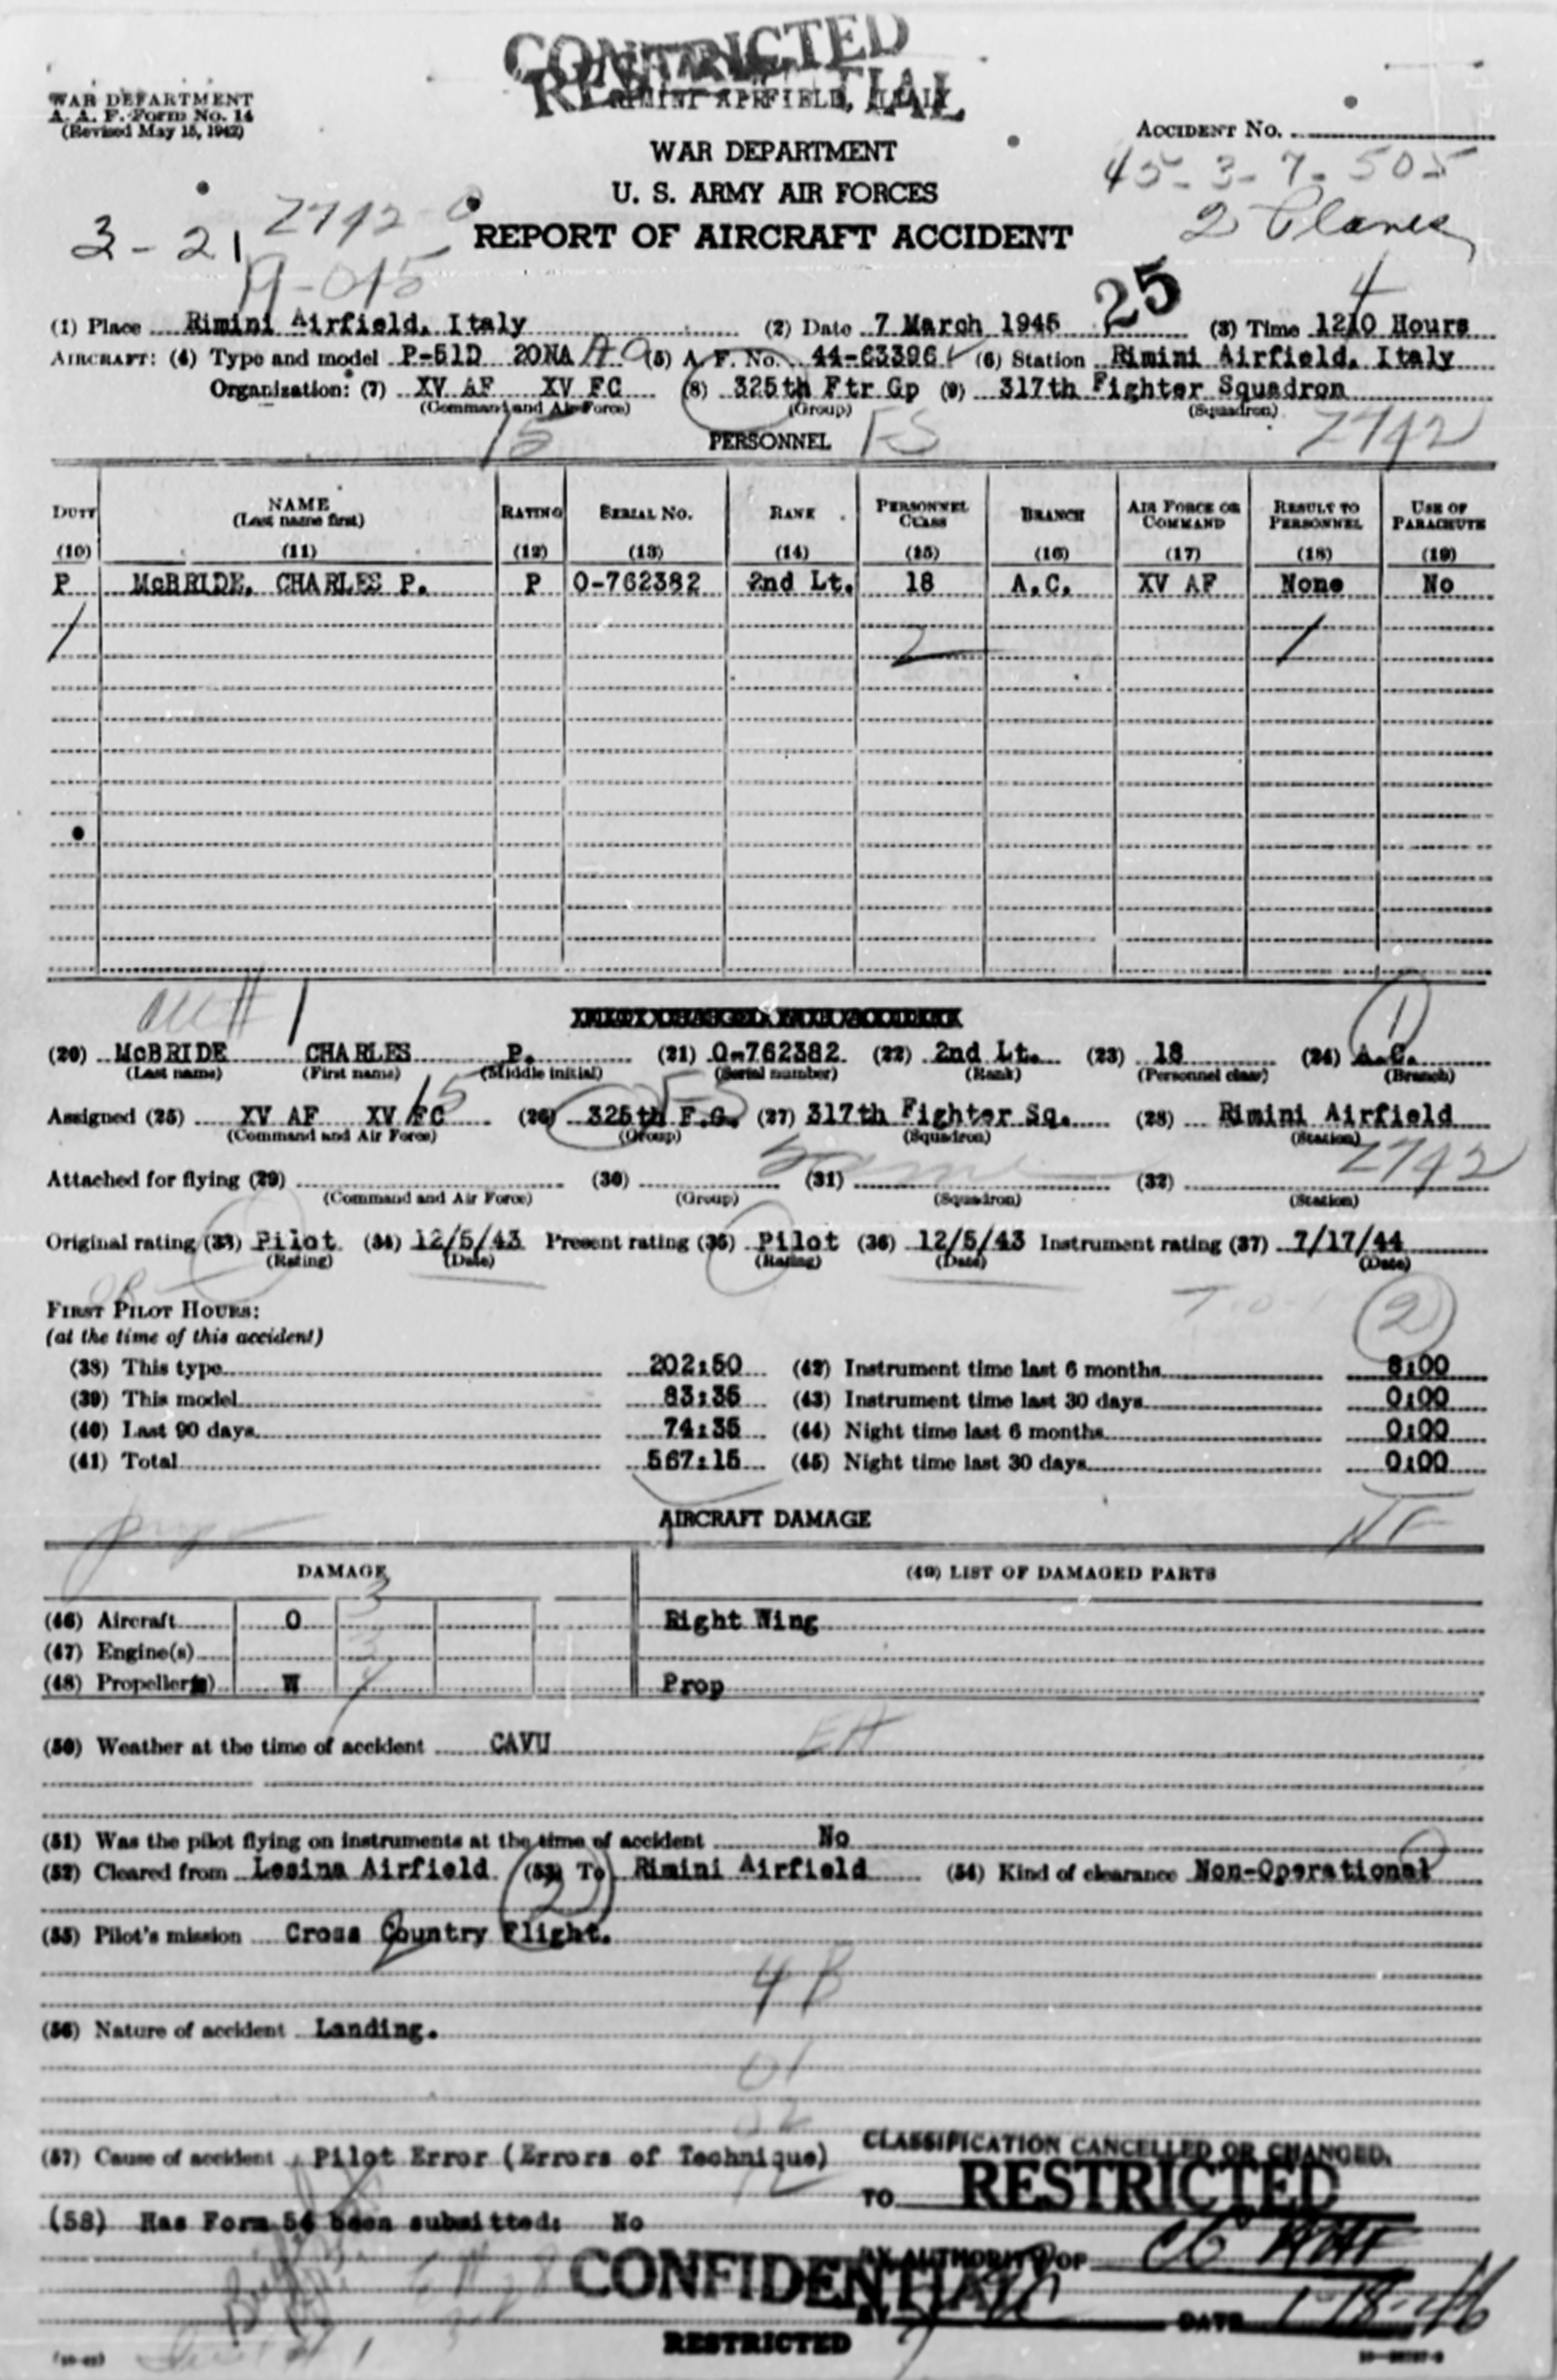 CONFIDENTIAL
RESTRICTED
RIMINI AIRFIELD, ITALY
WAR DEPARTMENT
A. A. F. Form No. 14
(Revised May 15, 1942)
ACCIDENT No.
45-3-7-505
2 Planes
WAR DEPARTMENT
U. S. ARMY AIR FORCES
REPORT OF AIRCRAFT ACCIDENT
3-21
2742
A-015
25
4
(1) Place Rimini Airfield, Italy (2) Date 7 March 1945 (3) Time 1210 Hours
AIRCRAFT: (4) Type and model P-51D 20NA (5) A. F. No. 44-63396 (6) Station Rimini Airfield, Italy
Organization: (7) XV AF XV FC (8) 325th Ftr Gp (9) 317th Fighter Squadron
(Command and Air Force) (Group) (Squadron)
15 PERSONNEL FS 2742
DUTY NAME (Last name first) RATING SERIAL NO. RANK PERSONNEL CLASS BRANCH AIR FORCE OR COMMAND RESULT TO PERSONNEL USE OF PARACHUTE
(10) (11) (12) (13) (14) (15) (16) (17) (18) (19)
P McBRIDE, CHARLES P. P O-762382 2nd Lt. 18 A.C. XV AF None No
1 2 1
1
(20) McBRIDE CHARLES P. (21) O-762382 (22) 2nd Lt. (23) 18 (24) A.C.
(Last name) (First name) (Middle initial) (Serial number) (Rank) (Personnel class) (Branch)
Assigned (25) XV AF XV FC (26) 325th F.G. (27) 317th Fighter Sq. (28) Rimini Airfield
(Command and Air Force) (Group) (Squadron) (Station)
15 FS Same 2742
Attached for flying (29) (30) (31) (32)
(Command and Air Force) (Group) (Squadron) (Station)
Original rating (33) Pilot (34) 12/5/43 Present rating (35) Pilot (36) 12/5/43 Instrument rating (37) 7/17/44
(Rating) (Date) (Rating) (Date) (Date)
FIRST PILOT HOURS:
(at the time of this accident)
2
(38) This type 202:50 (42) Instrument time last 6 months 8:00
(39) This model 83:35 (43) Instrument time last 30 days 0:00
(40) Last 90 days 74:35 (44) Night time last 6 months 0:00
(41) Total 567:15 (45) Night time last 30 days 0:00
AIRCRAFT DAMAGE
DAMAGE (49) LIST OF DAMAGED PARTS
3
(46) Aircraft O Right Wing
(47) Engine(s) 3
(48) Propeller(s) W Prop
(50) Weather at the time of accident CAVU
(51) Was the pilot flying on instruments at the time of accident No
(52) Cleared from Lesina Airfield (53) To Rimini Airfield (54) Kind of clearance Non-Operational
2
(55) Pilot's mission Cross Country Flight.
4B
(56) Nature of accident Landing.
01
(57) Cause of accident Pilot Error (Errors of Technique)
CLASSIFICATION CANCELLED OR CHANGED,
TO RESTRICTED
(58) Has Form 54 been submitted: No
BY AUTHORITY OF CG AAF
CONFIDENTIAL
BY DATE 1-18-46
RESTRICTED